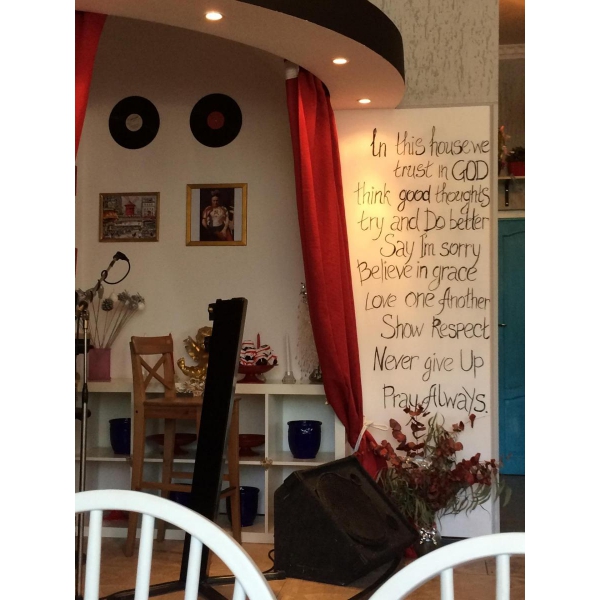 In this house we
trust in GOD
think good thoughts
try and Do better
Say I'm sorry
Believe in grace
Love one Another
Show Respect
Never give Up
Pray Always.